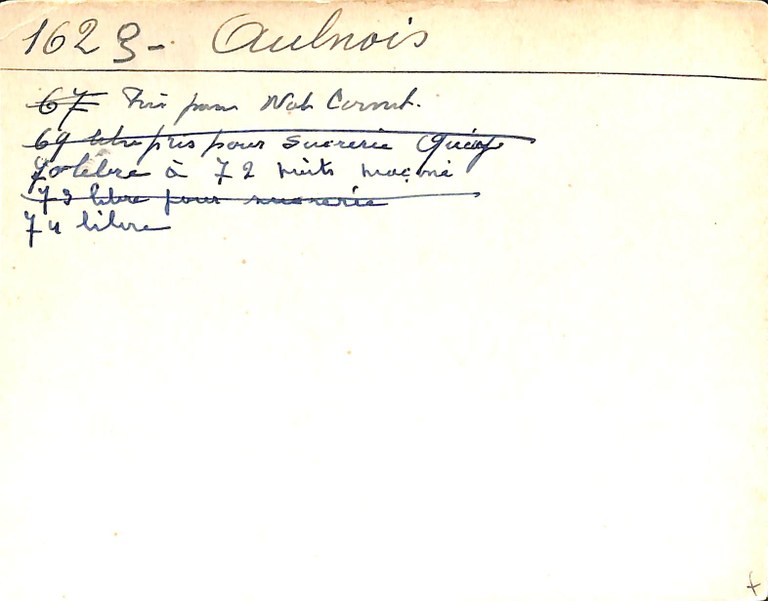 1623 - Aulnois
67 Pris pour Not Cornut.
69 libre pris pour sucrerie Quévy
70 libre à 72 nuits maçoné
73 libre pour sucrerie
74 libre